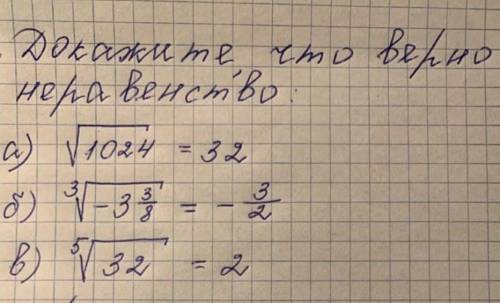 Докажите, что верно
неравенство:
а) √1024 = 32
б) ∛(-3 3/8) = - 3/2
в) ⁵√32 = 2